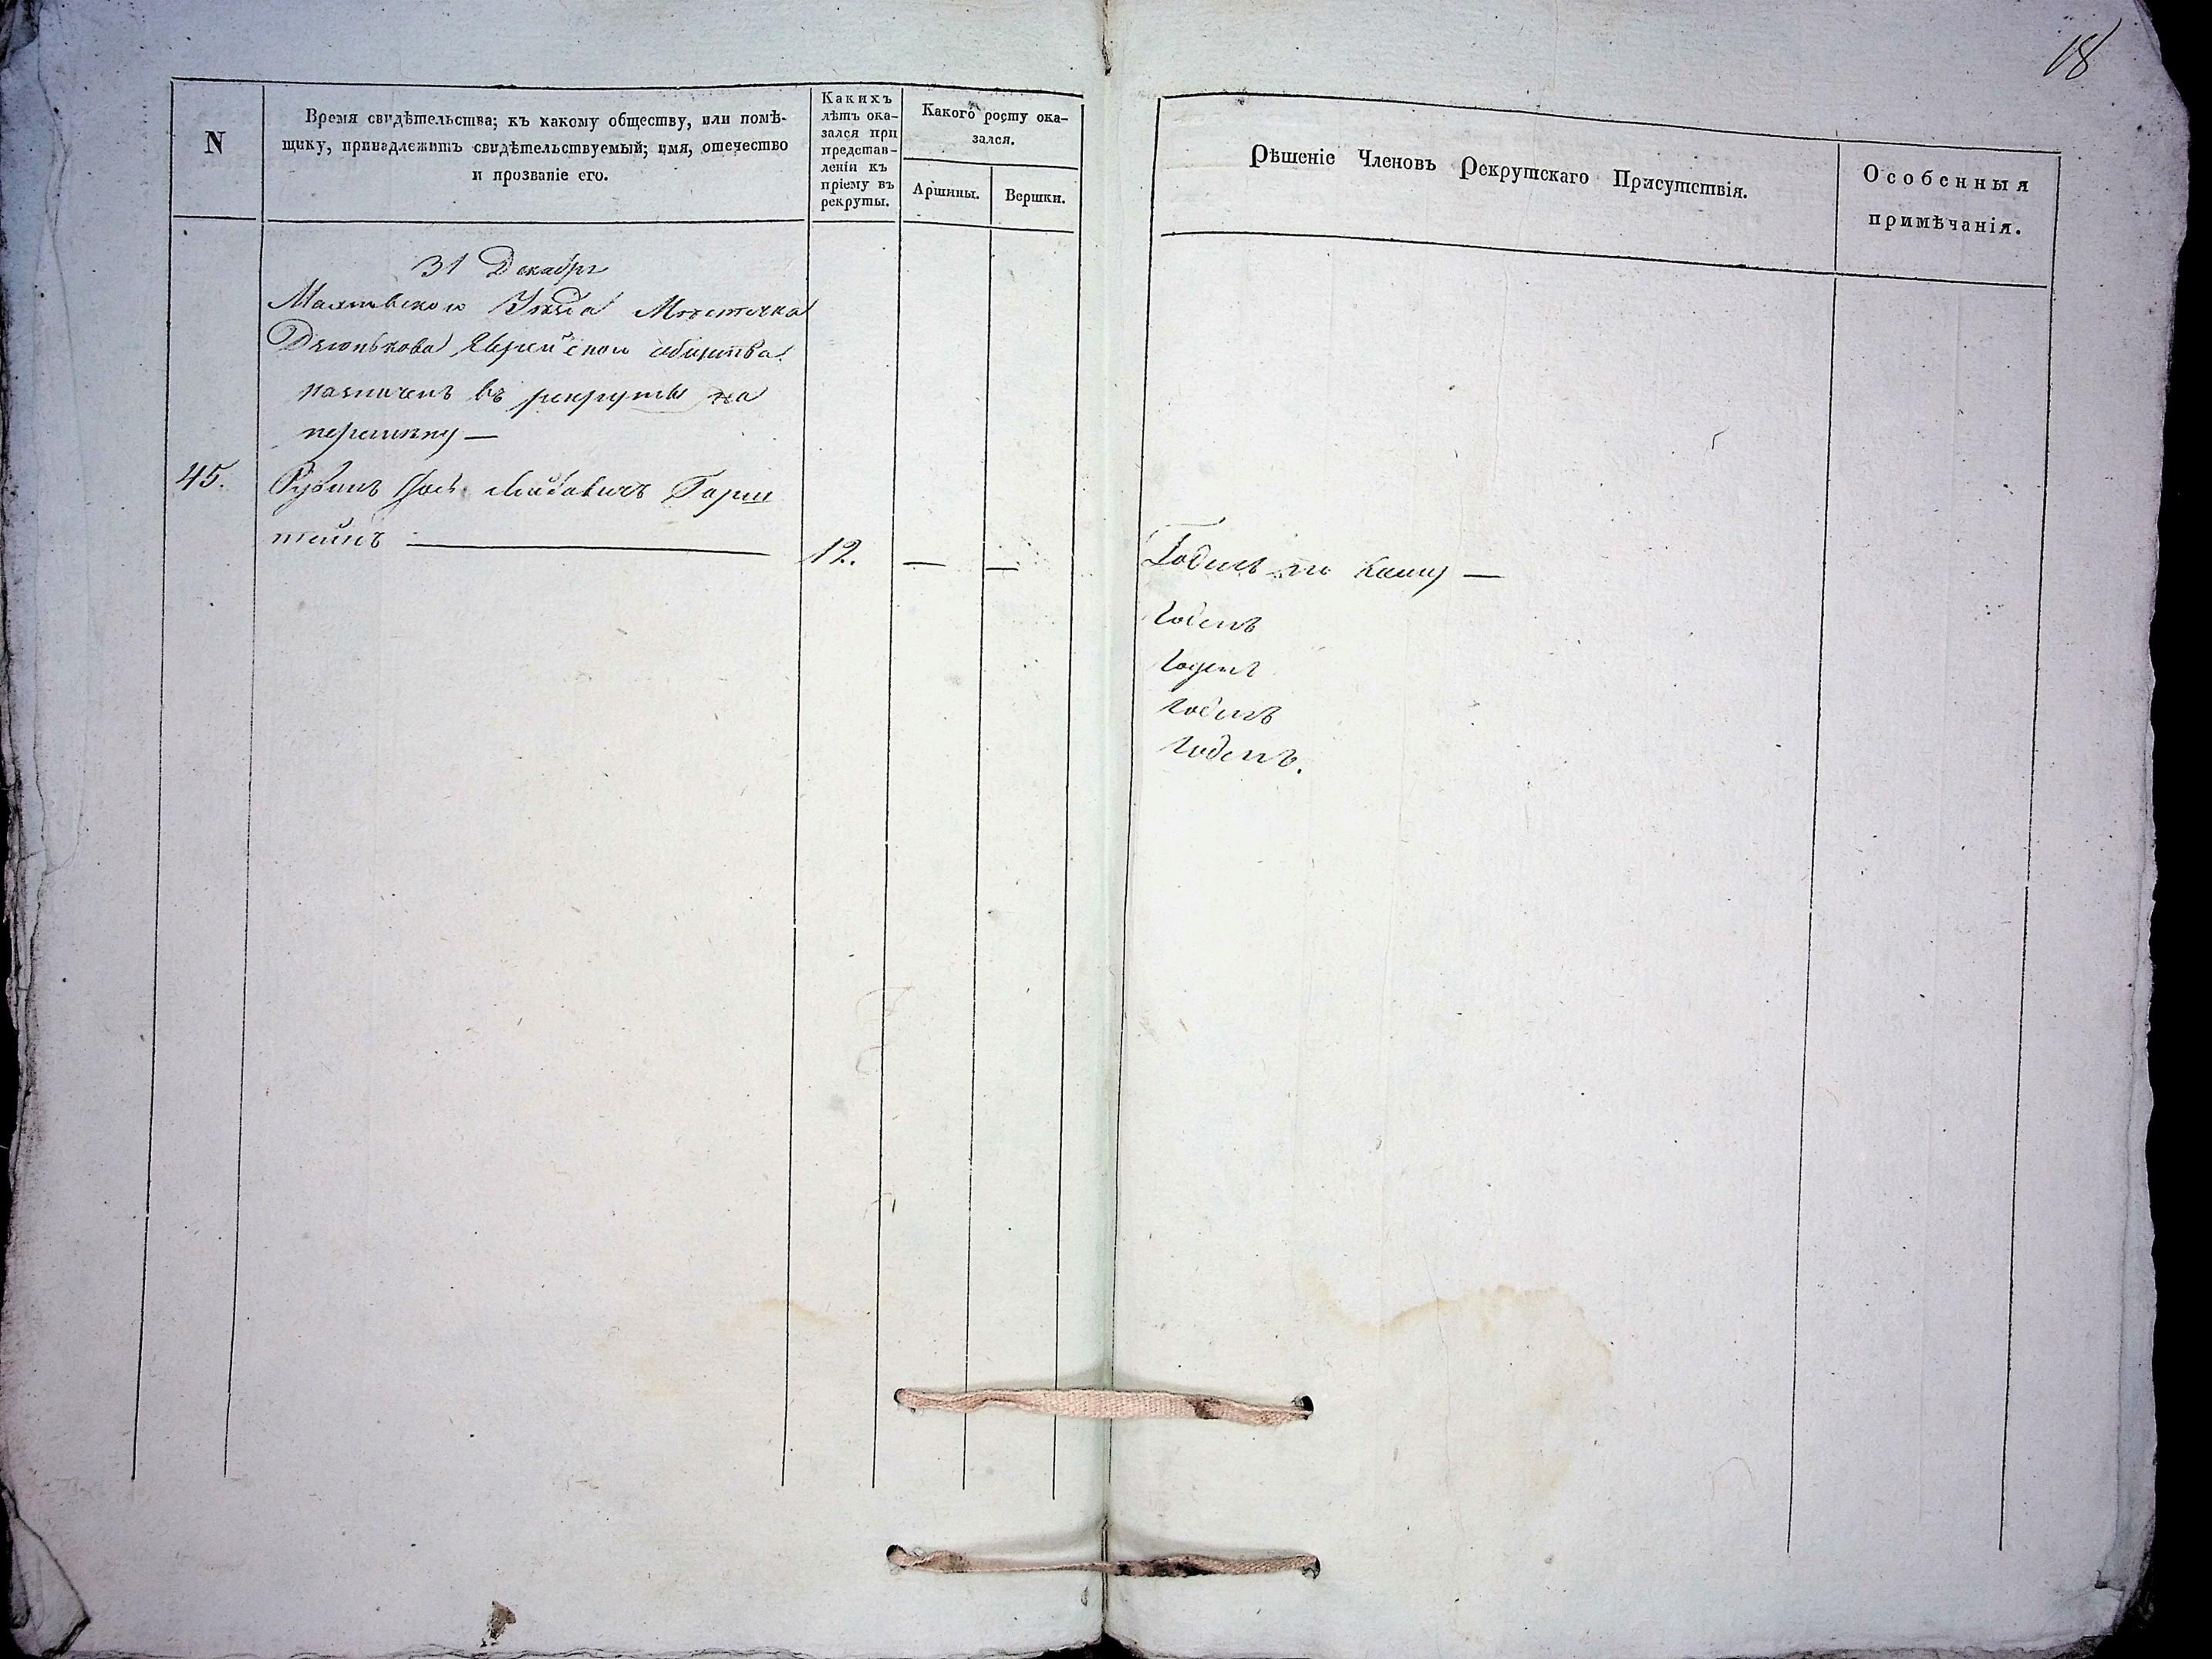 18
N
Время свидѣтельства; къ какому обществу, или помѣ-
щику, принадлежитъ свидѣтельствуемый; имя, отечество
и прозваніе его.
Какихъ
лѣтъ ока-
зался при
представ-
леніи къ
пріему въ
рекруты.
Какого росту ока-
зался.
Аршины.
Вершки.
Рѣшеніе Членовъ Рекрутскаго Присутствія.
Особенныя
примѣчанія.
31 Декабря
Уѣзда Мѣстечка
Дзюнькова Еврейскаго общества
назначенъ въ рекруты на
45.
Рубинъ Гарш
тейнъ
12.
— —
Годенъ —
годенъ
годенъ
годенъ
годенъ.